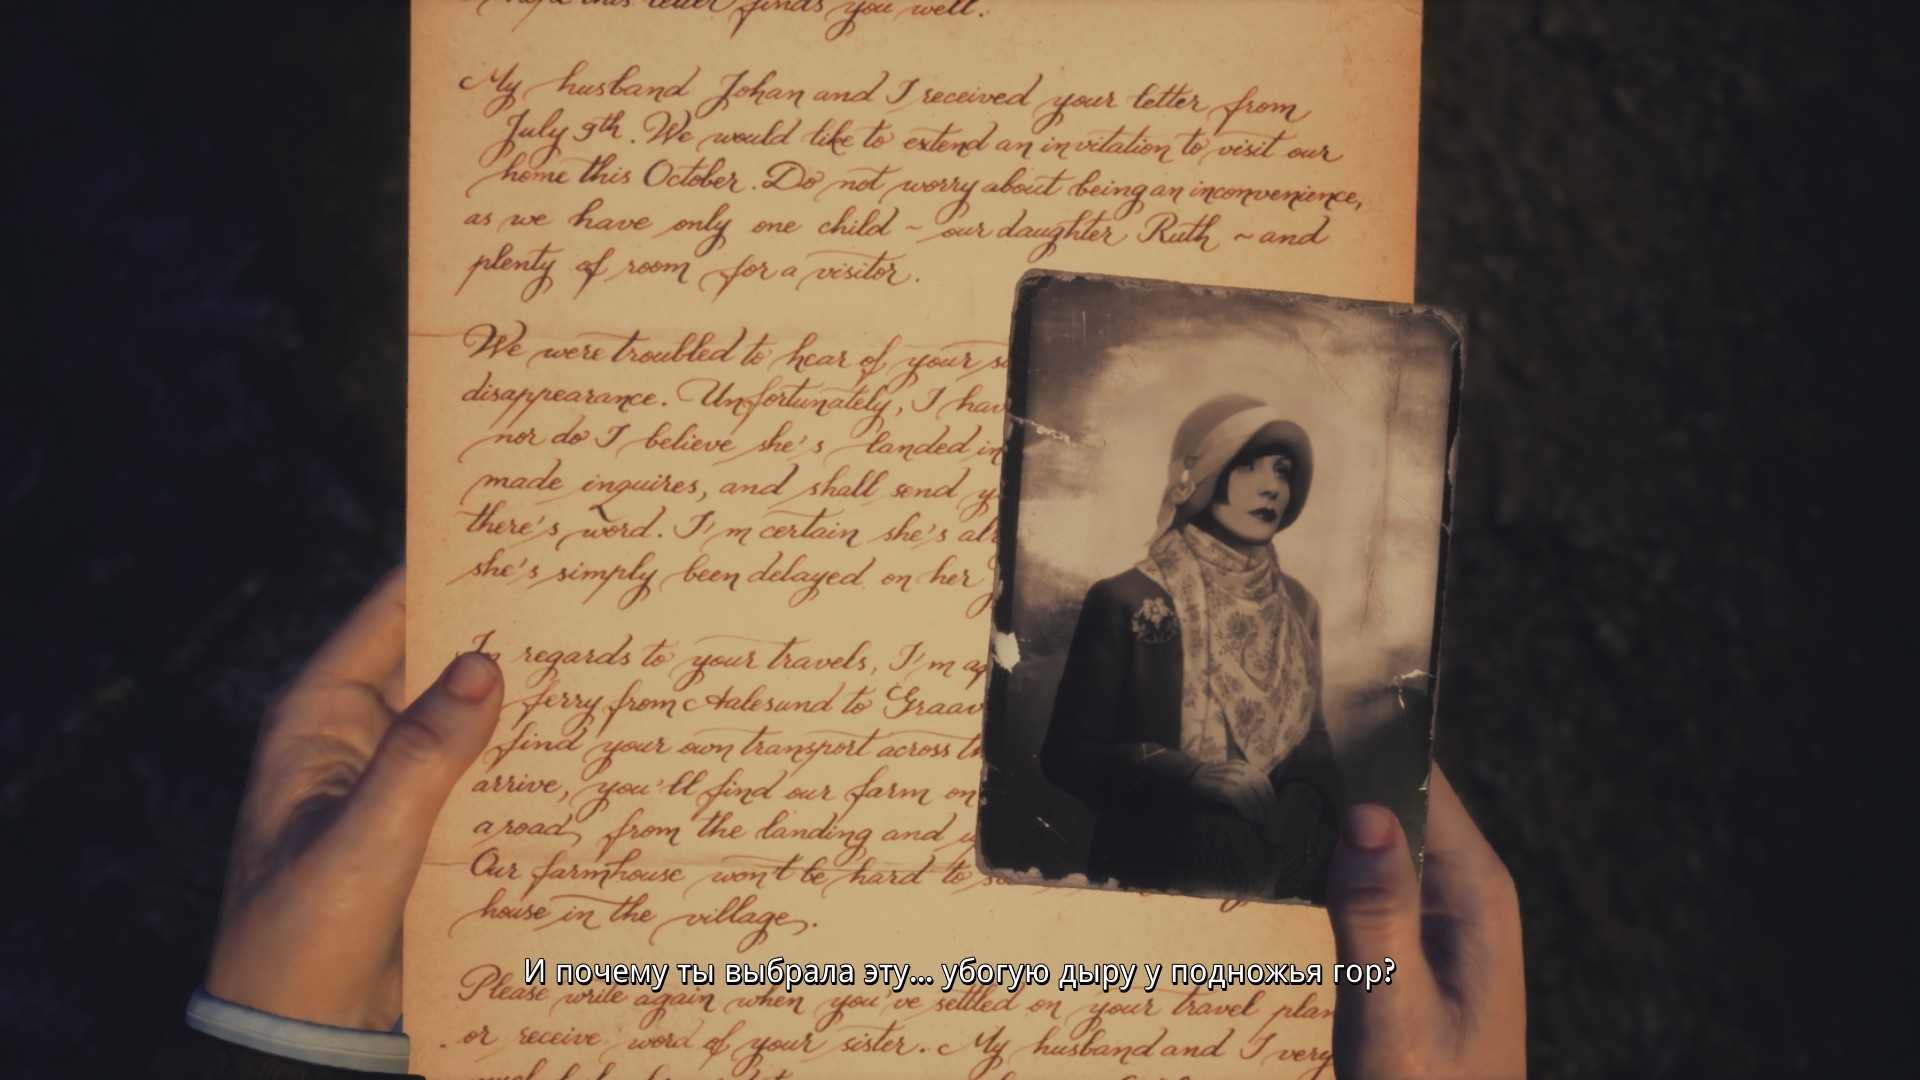 hope this letter finds you well.
My husband Johan and I received your letter from
July 9th. We would like to extend an invitation to visit our
home this October. Do not worry about being an inconvenience,
as we have only one child ~ our daughter Ruth ~ and
plenty of room for a visitor.
We were troubled to hear of your
disappearance. Unfortunately, I
nor do I believe she's landed
made inquires, and shall send
there's word. I'm certain she's
she's simply been delayed on her
In regards to your travels, I'm
ferry from Aalesund to
find your own transport across
arrive, you'll find our farm on
a road from the landing and
Our farmhouse won't be hard to
house in the village.
И почему ты выбрала эту... убогую дыру у подножья гор?
Please write again when you've settled on your travel
or receive word of your sister. My husband and I very